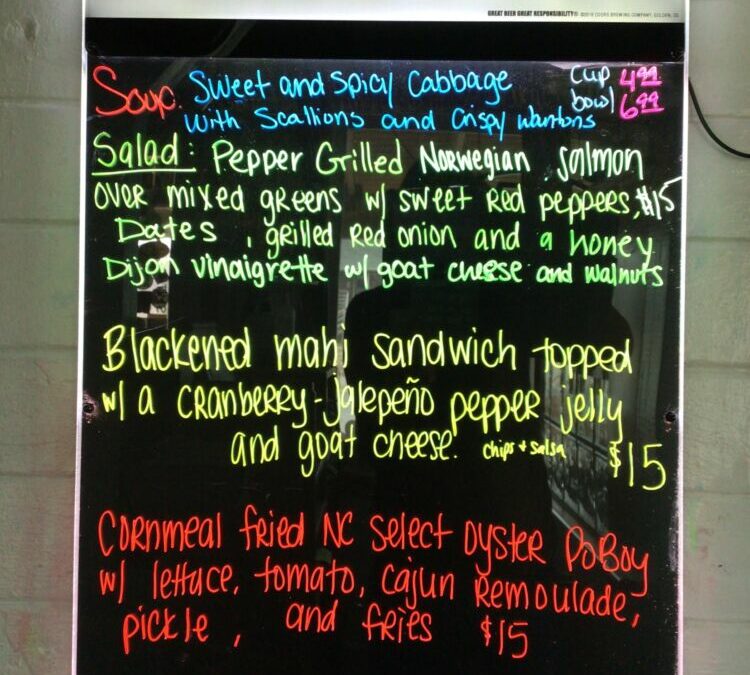 GREAT BEER GREAT RESPONSIBILITY® ©2018 COORS BREWING COMPANY, GOLDEN, CO
Soup. Sweet and Spicy Cabbage cup 4.99
With Scallions and Crispy Wantons bowl 6.99
Salad: Pepper Grilled Norwegian Salmon
over mixed greens w/ sweet red peppers, $15
Dates, grilled red onion and a honey
Dijon vinaigrette w/ goat cheese and walnuts
Blackened mahi sandwich topped
w/ a cranberry-jalepeño pepper jelly
and goat cheese. chips + salsa $15
Cornmeal fried NC select oyster PoBoy
w/ lettuce, tomato, cajun remoulade,
pickle, and fries $15